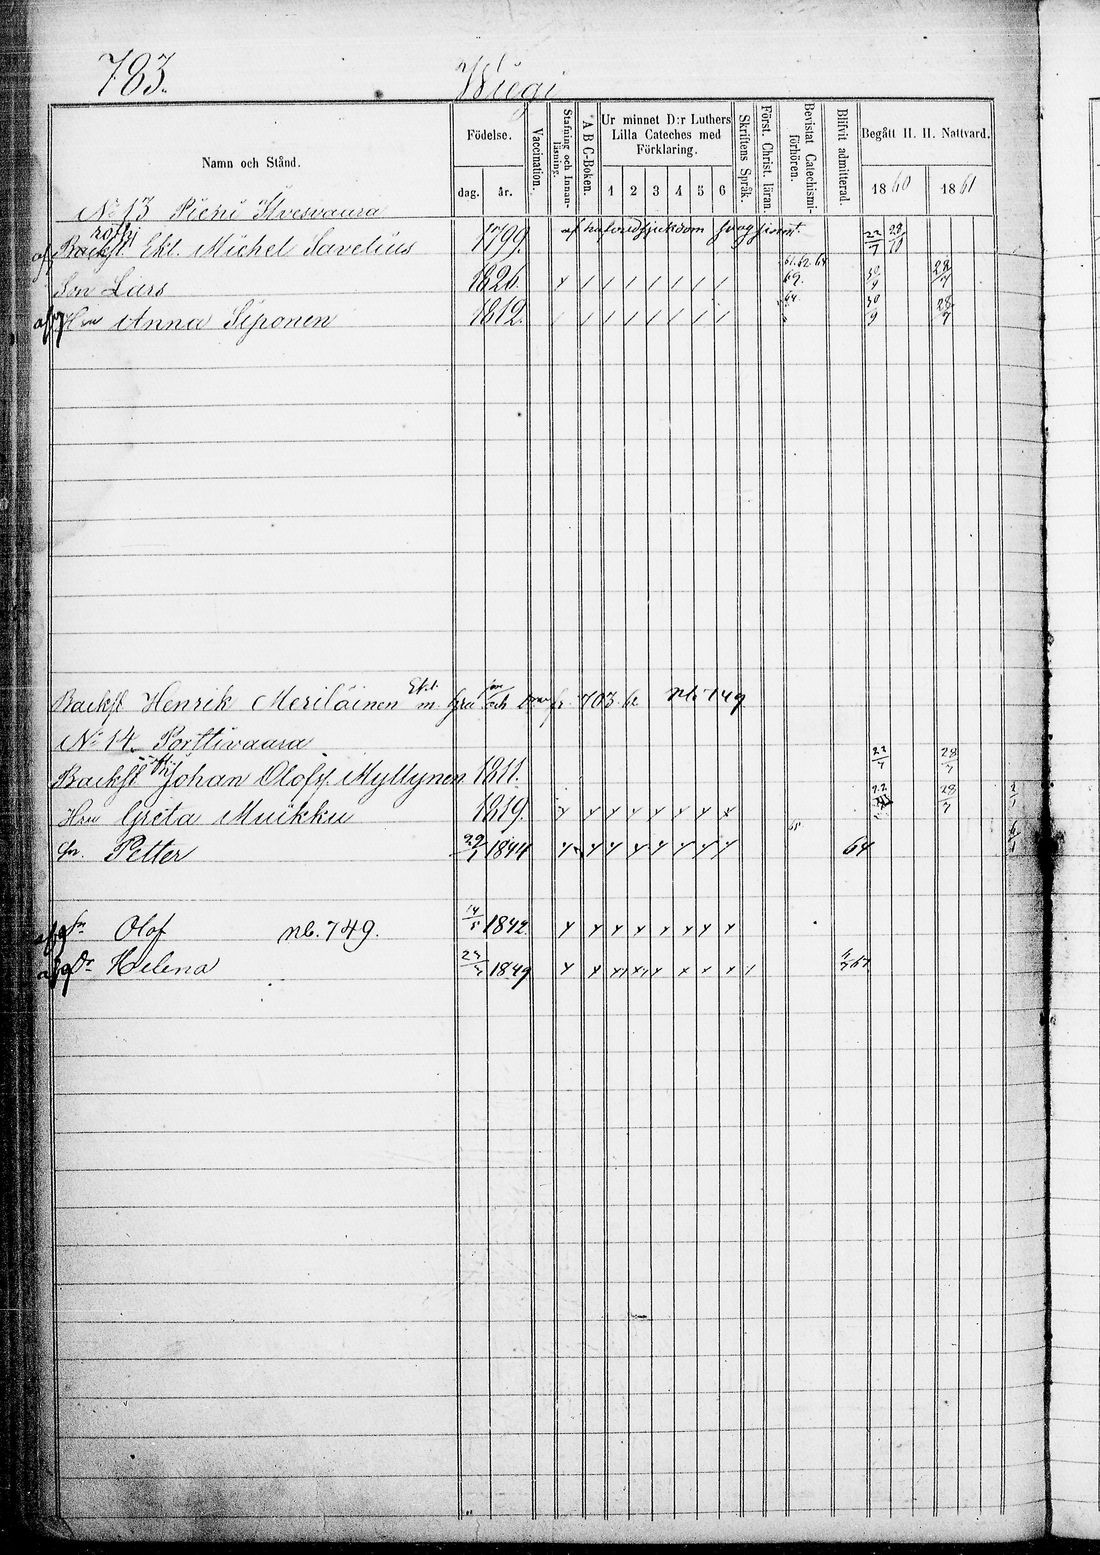 783.
Wiegi
Namn och Stånd.
Födelse.
dag. år.
Vaccination.
Stafning och Innanläsning.
A B C-Boken.
Ur minnet D:r Luthers Lilla Cateches med Förklaring.
1 2 3 4 5 6
Skriftens Språk.
Först. Christ. läran.
Bevistat Catechismiförhören.
Blifvit admitterad.
Begått H. H. Nattvard.
1860 1861
No 13 Pieni Ilvesvaara
Backst. Ekl. Michel Savelius 1799. af hufvudsjukdom 22/7
Son Lars 1826. 61. 62. 64 69. 30/9 28/7
afg Hru Anna Siponen 1812. 64 30/9 28/7
Backst Henrik Meriläinen Ekl. m. fru och son fr. 703. nb: 749
No 14. Porttivaara
Backst Johan Olofss. Myllynen 1811. 22/7 28/7
Hru Greta Muikku 1819. 28/7
sn. Petter 29/1 1844 64
afg sn Olof nb. 749. 14/5 1842
afg Dr Helena 1849